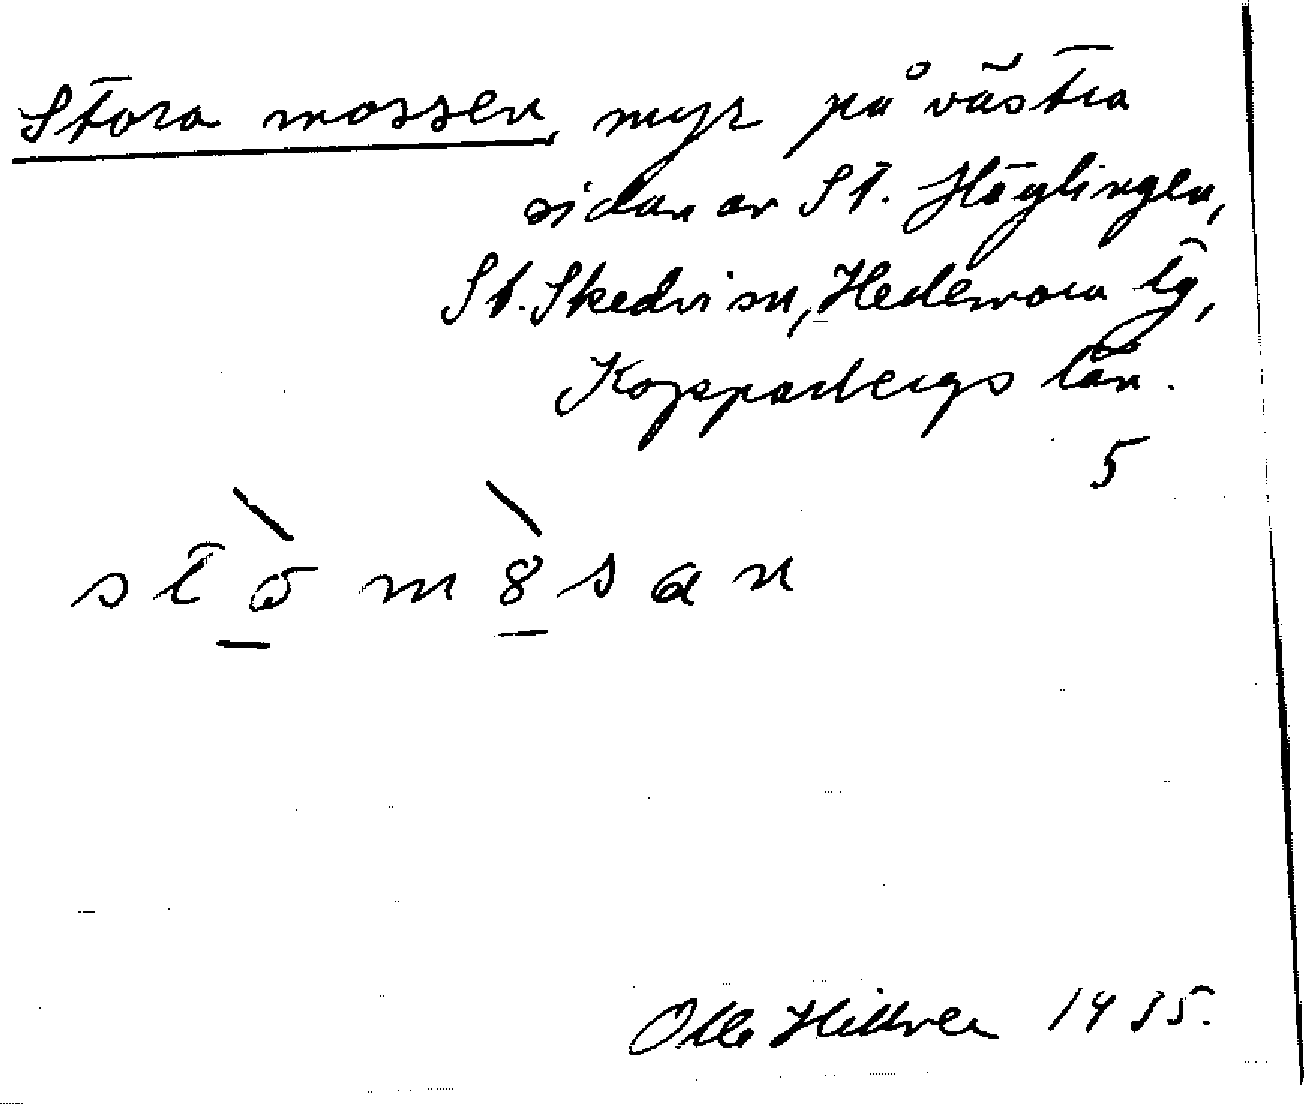 Stora mossen, myr på västra
sidan av St. Häglingen,
St. Skedvi sn, Hedemora tg,
Kopparbergs län.
5
Olle Hillren 1935.